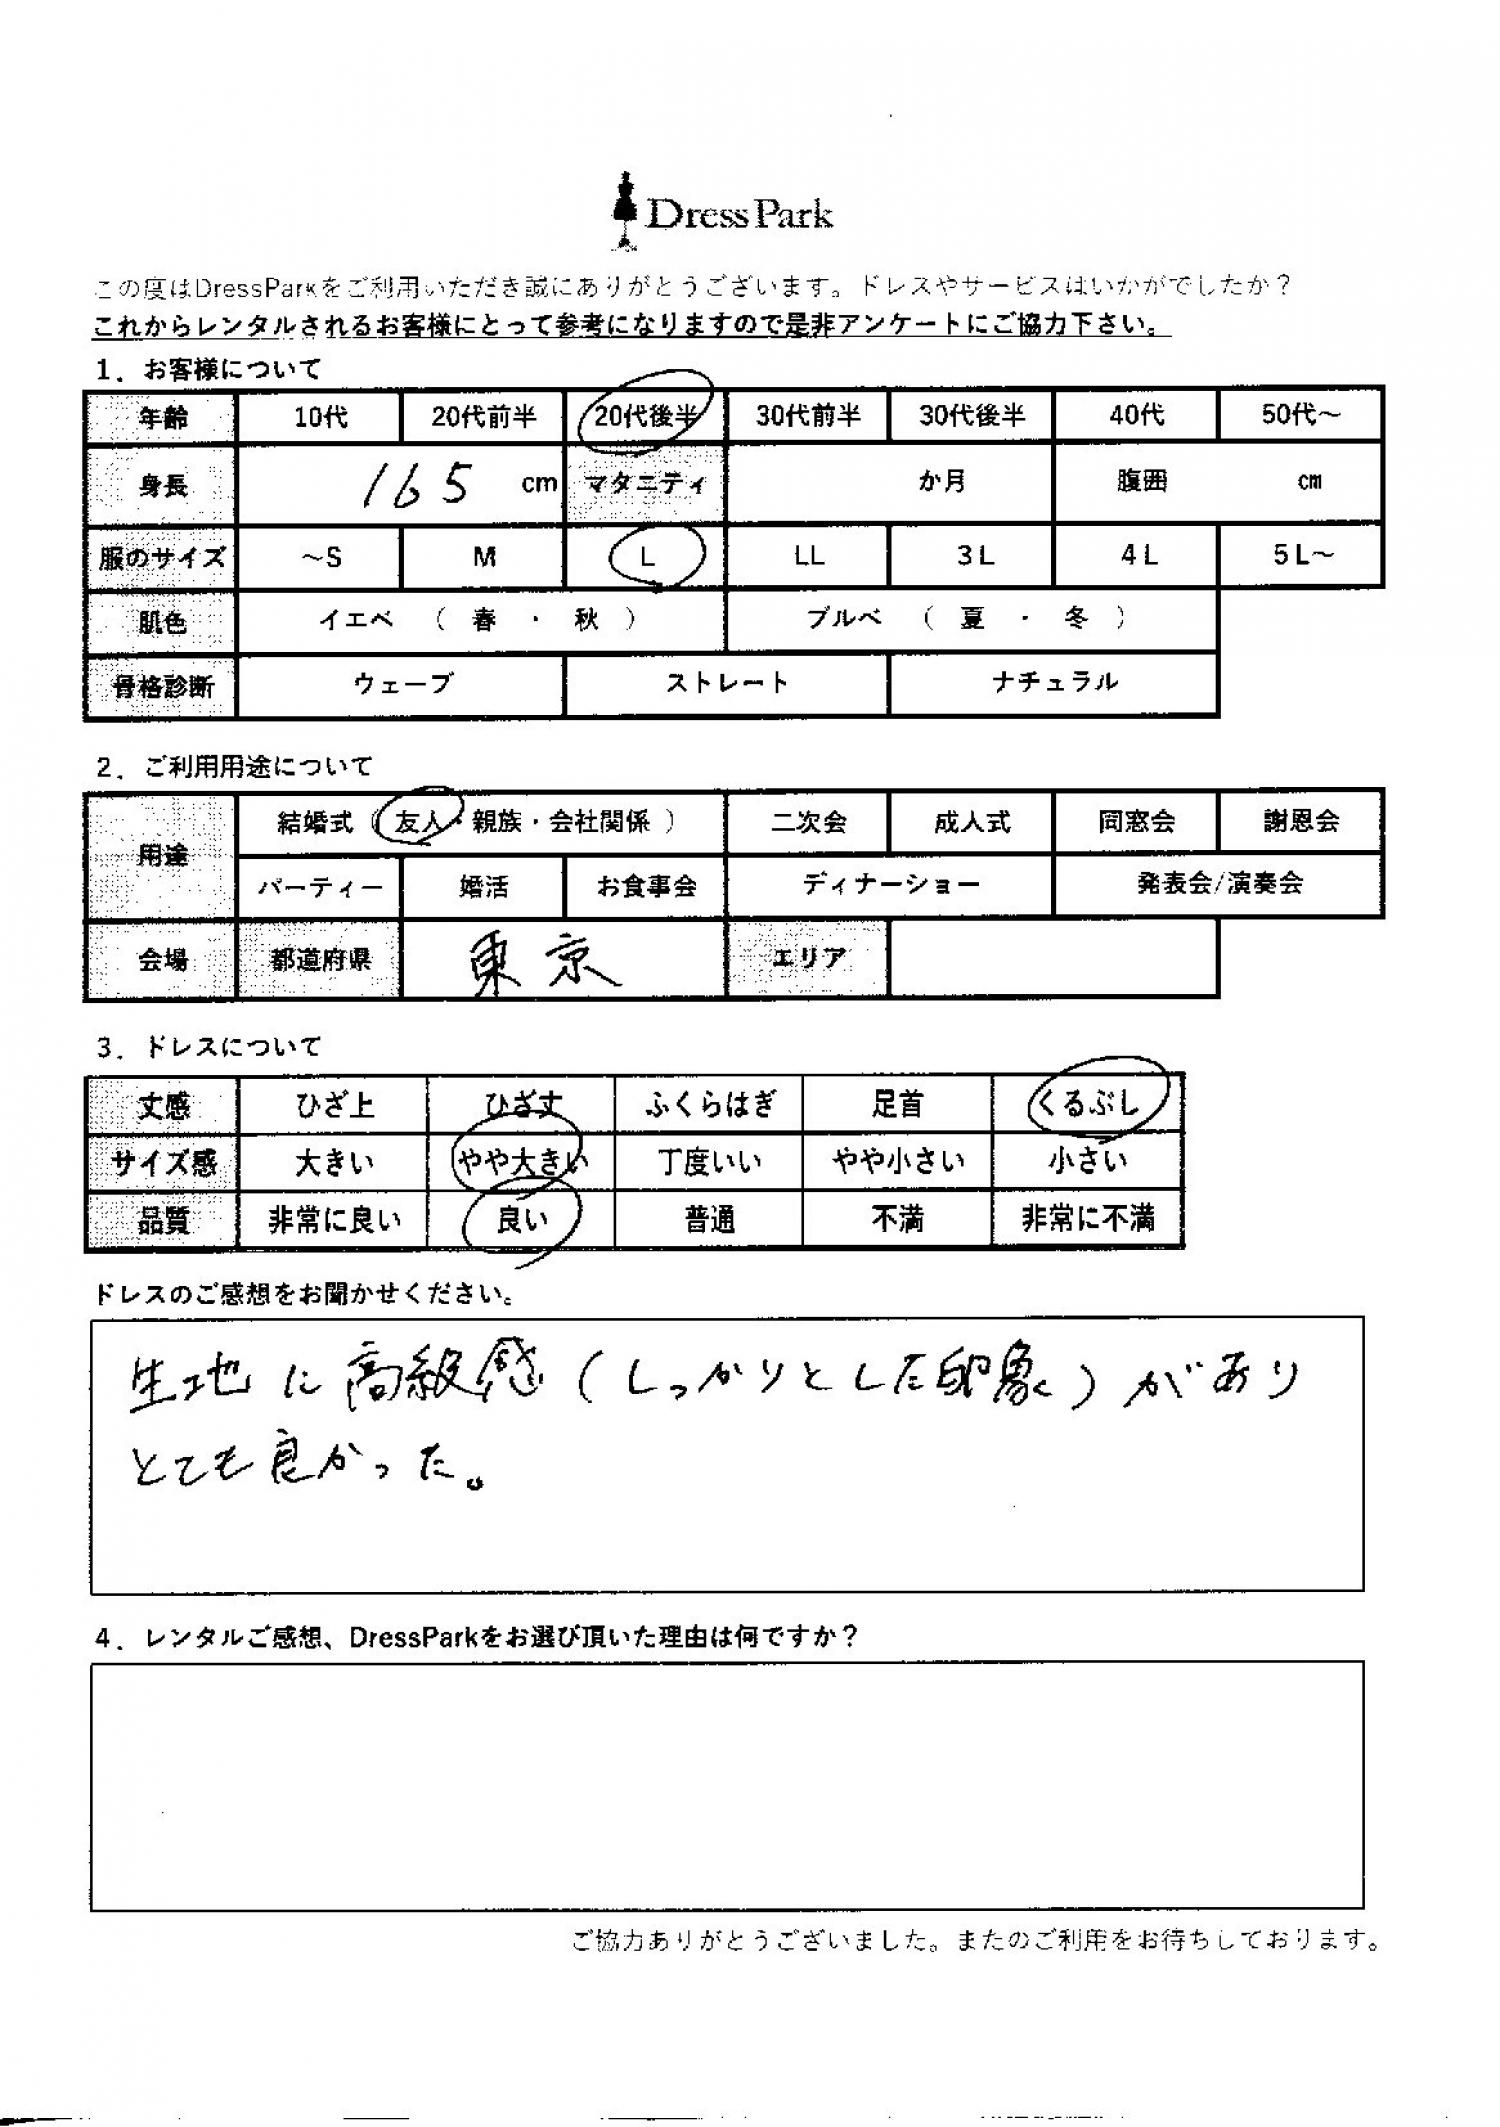 Dress Park
この度はDressParkをご利用いただき誠にありがとうございます。ドレスやサービスはいかがでしたか？
これからレンタルされるお客様にとって参考になりますので是非アンケートにご協力下さい。
1．お客様について
年齢 10代 20代前半 20代後半 30代前半 30代後半 40代 50代～
身長 165 cm マタニティ か月 腹囲 cm
服のサイズ ～S M L LL 3L 4L 5L～
肌色 イエベ （ 春 ・ 秋 ） ブルベ （ 夏 ・ 冬 ）
骨格診断 ウェーブ ストレート ナチュラル
2．ご利用用途について
用途 結婚式（友人・親族・会社関係） 二次会 成人式 同窓会 謝恩会
パーティー 婚活 お食事会 ディナーショー 発表会/演奏会
会場 都道府県 東京 エリア
3．ドレスについて
丈感 ひざ上 ひざ丈 ふくらはぎ 足首 くるぶし
サイズ感 大きい やや大きい 丁度いい やや小さい 小さい
品質 非常に良い 良い 普通 不満 非常に不満
ドレスのご感想をお聞かせください。
生地に高級感（しっかりとした印象）があり
とても良かった。
4．レンタルご感想、DressParkをお選び頂いた理由は何ですか？
ご協力ありがとうございました。またのご利用をお待ちしております。